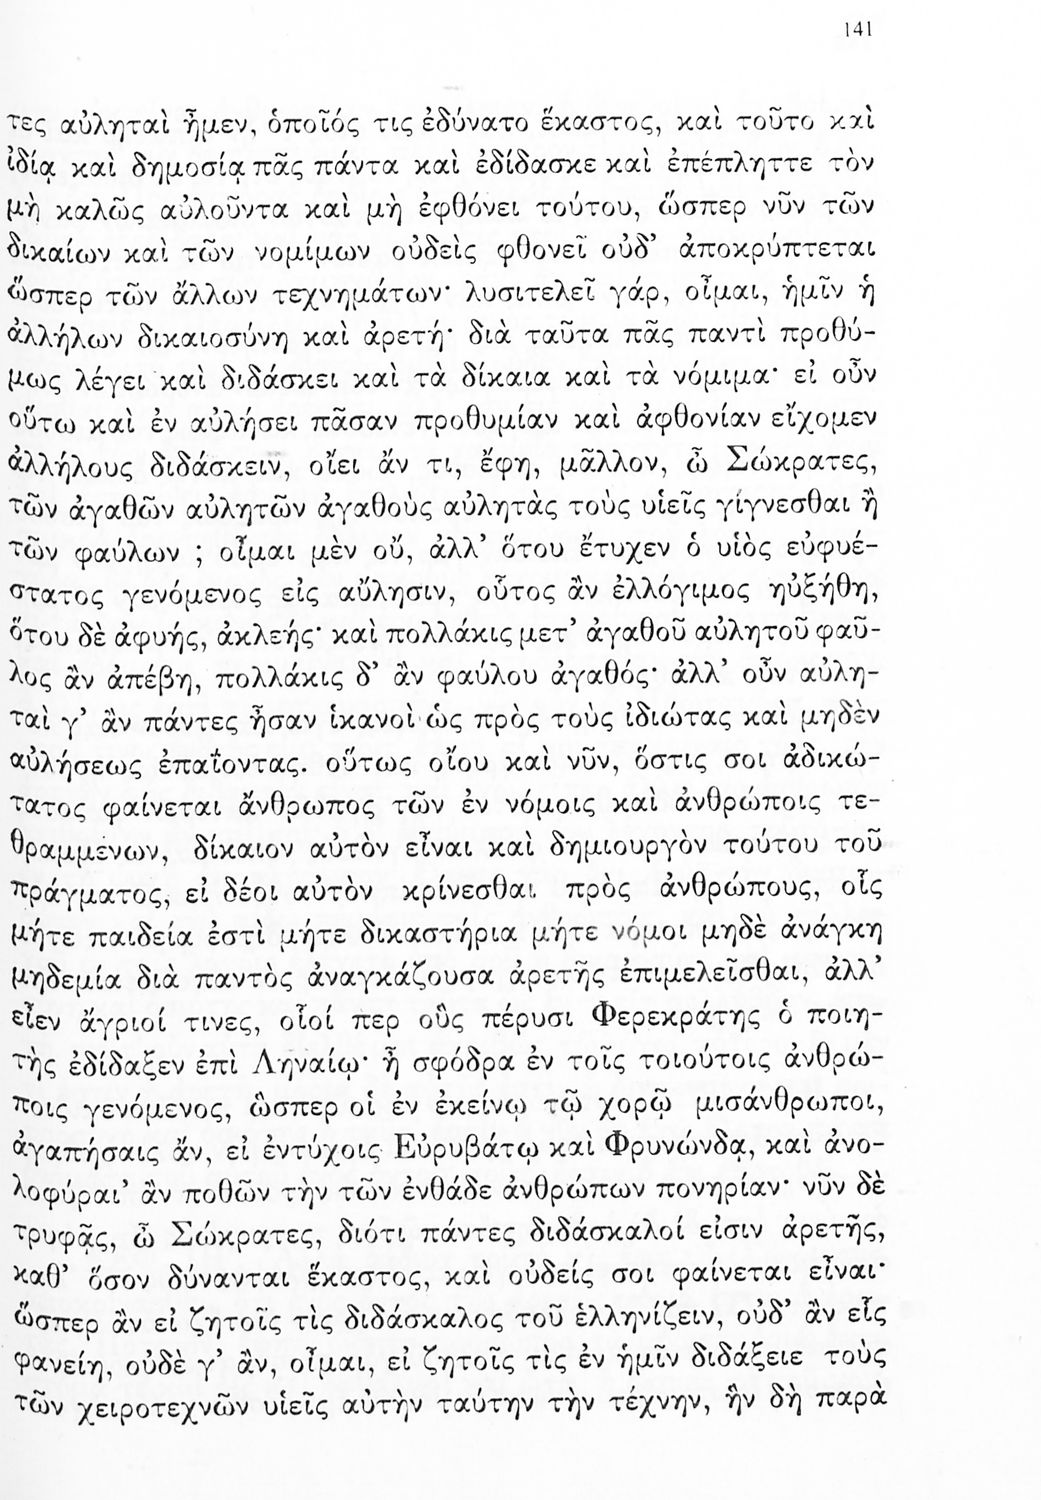 141
τες αὐληταὶ ἦμεν, ὁποῖός τις ἐδύνατο ἕκαστος, καὶ τοῦτο καὶ
ἰδίᾳ καὶ δημοσίᾳ πᾶς πάντα καὶ ἐδίδασκε καὶ ἐπέπληττε τὸν
μὴ καλῶς αὐλοῦντα καὶ μὴ ἐφθόνει τούτου, ὥσπερ νῦν τῶν
δικαίων καὶ τῶν νομίμων οὐδεὶς φθονεῖ οὐδ’ ἀποκρύπτεται
ὥσπερ τῶν ἄλλων τεχνημάτων· λυσιτελεῖ γάρ, οἶμαι, ἡμῖν ἡ
ἀλλήλων δικαιοσύνη καὶ ἀρετή· διὰ ταῦτα πᾶς παντὶ προθύ-
μως λέγει καὶ διδάσκει καὶ τὰ δίκαια καὶ τὰ νόμιμα· εἰ οὖν
οὕτω καὶ ἐν αὐλήσει πᾶσαν προθυμίαν καὶ ἀφθονίαν εἴχομεν
ἀλλήλους διδάσκειν, οἴει ἄν τι, ἔφη, μᾶλλον, ὦ Σώκρατες,
τῶν ἀγαθῶν αὐλητῶν ἀγαθοὺς αὐλητὰς τοὺς υἱεῖς γίγνεσθαι ἢ
τῶν φαύλων ; οἶμαι μὲν οὔ, ἀλλ’ ὅτου ἔτυχεν ὁ υἱὸς εὐφυέ-
στατος γενόμενος εἰς αὔλησιν, οὗτος ἂν ἐλλόγιμος ηὐξήθη,
ὅτου δὲ ἀφυής, ἀκλεής· καὶ πολλάκις μετ’ ἀγαθοῦ αὐλητοῦ φαῦ-
λος ἂν ἀπέβη, πολλάκις δ’ ἂν φαύλου ἀγαθός· ἀλλ’ οὖν αὐλη-
ταὶ γ’ ἂν πάντες ἦσαν ἱκανοὶ ὡς πρὸς τοὺς ἰδιώτας καὶ μηδὲν
αὐλήσεως ἐπαΐοντας. οὕτως οἴου καὶ νῦν, ὅστις σοι ἀδικώ-
τατος φαίνεται ἄνθρωπος τῶν ἐν νόμοις καὶ ἀνθρώποις τε-
θραμμένων, δίκαιον αὐτὸν εἶναι καὶ δημιουργὸν τούτου τοῦ
πράγματος, εἰ δέοι αὐτὸν κρίνεσθαι πρὸς ἀνθρώπους, οἷς
μήτε παιδεία ἐστὶ μήτε δικαστήρια μήτε νόμοι μηδὲ ἀνάγκη
μηδεμία διὰ παντὸς ἀναγκάζουσα ἀρετῆς ἐπιμελεῖσθαι, ἀλλ’
εἶεν ἄγριοί τινες, οἷοί περ οὓς πέρυσι Φερεκράτης ὁ ποιη-
τὴς ἐδίδαξεν ἐπὶ Ληναίῳ· ἦ σφόδρα ἐν τοῖς τοιούτοις ἀνθρώ-
ποις γενόμενος, ὥσπερ οἱ ἐν ἐκείνῳ τῷ χορῷ μισάνθρωποι,
ἀγαπήσαις ἄν, εἰ ἐντύχοις Εὐρυβάτῳ καὶ Φρυνώνδᾳ, καὶ ἀνο-
λοφύραι’ ἂν ποθῶν τὴν τῶν ἐνθάδε ἀνθρώπων πονηρίαν· νῦν δὲ
τρυφᾷς, ὦ Σώκρατες, διότι πάντες διδάσκαλοί εἰσιν ἀρετῆς,
καθ’ ὅσον δύνανται ἕκαστος, καὶ οὐδείς σοι φαίνεται εἶναι·
ὥσπερ ἂν εἰ ζητοῖς τὶς διδάσκαλος τοῦ ἑλληνίζειν, οὐδ’ ἂν εἷς
φανείη, οὐδὲ γ’ ἄν, οἶμαι, εἰ ζητοῖς τὶς ἐν ἡμῖν διδάξειε τοὺς
τῶν χειροτεχνῶν υἱεῖς αὐτὴν ταύτην τὴν τέχνην, ἣν δὴ παρὰ